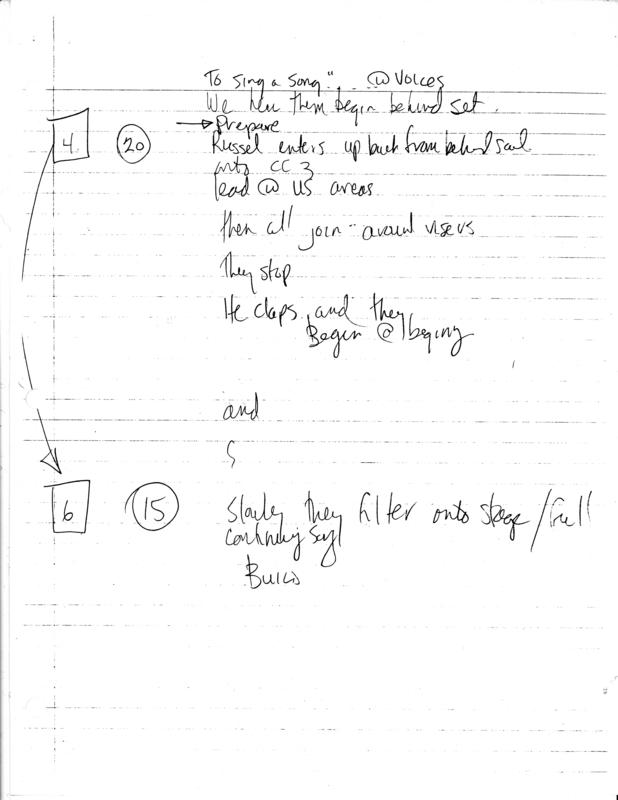 To sing a song" @ Voices
We hear them begin behind set.
→ Prepare
4 20 Russel enters up back from behind
onto CC 3
lead @ US areas
then all join - around
They stop
He claps, and they
Begin @ beging
and
6 15 Slowly they filter onto stage / full
continuing
Build